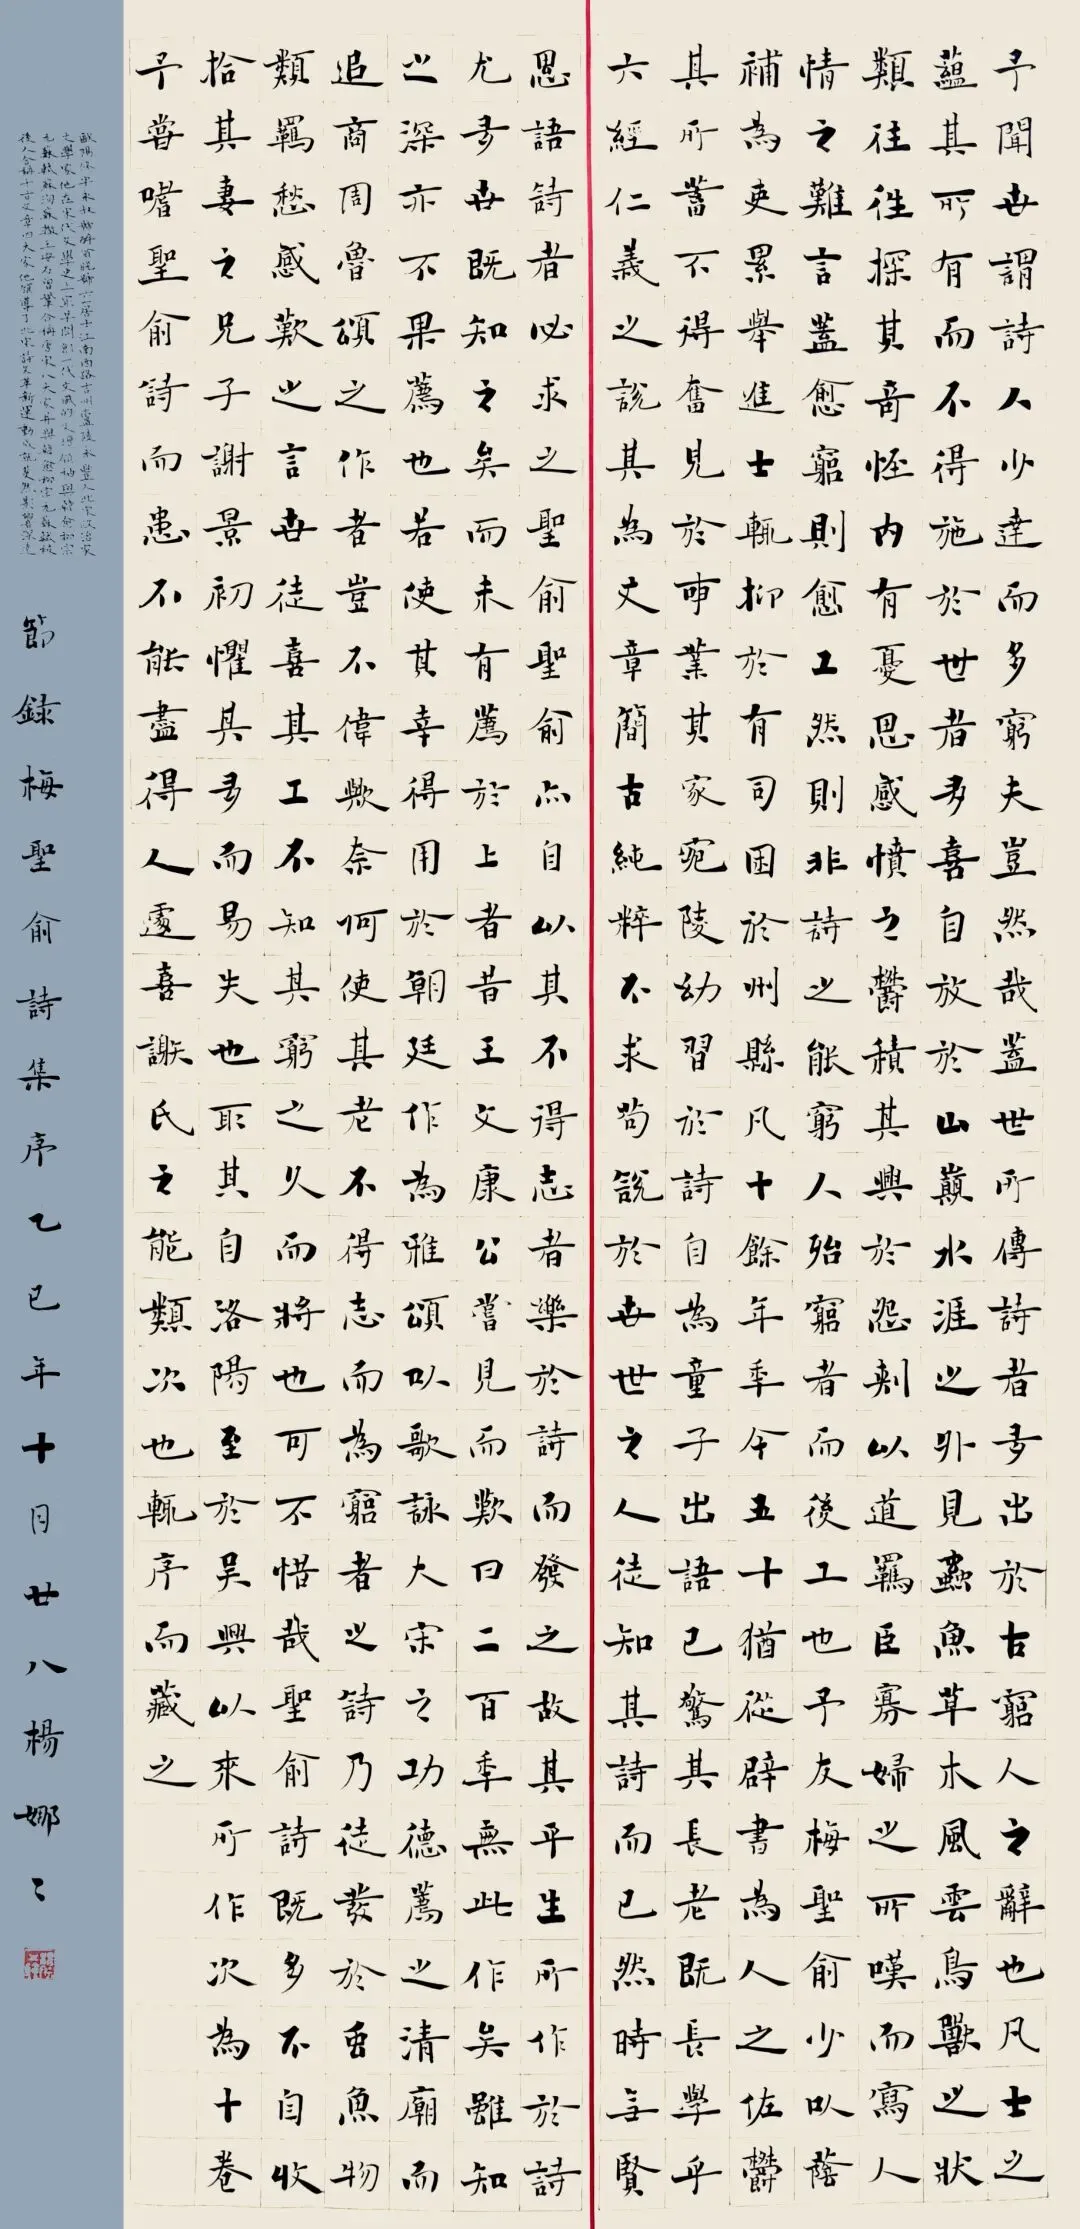 予聞世謂詩人少達而多窮夫豈然哉蓋世所傳詩者多出於古窮人之辭也凡士之
蘊其所有而不得施於世者多喜自放於山巔水涯之外見蟲魚草木風雲鳥獸之狀
類往往探其奇怪內有憂思感憤之鬱積其興於怨刺以道羈臣寡婦之所嘆而寫人
情之難言蓋愈窮則愈工然則非詩之能窮人殆窮者而後工也予友梅聖俞少以蔭
補為吏累舉進士輒抑於有司困於州縣凡十餘年年今五十猶從辟書為人之佐鬱
其所蓄不得奮見於事業其家宛陵幼習於詩自為童子出語已驚其長老既長學乎
六經仁義之說其為文章簡古純粹不求苟說於世世之人徒知其詩而已然時無賢
愚語詩者必求之聖俞聖俞亦自以其不得志者樂於詩而發之故其平生所作於詩
尤多世既知之矣而未有薦於上者昔王文康公嘗見而歎曰二百年無此作矣雖知
之深亦不果薦也若使其幸得用於朝廷作為雅頌以歌詠大宋之功德薦之清廟而
追商周魯頌之作者豈不偉歟奈何使其老不得志而為窮者之詩乃徒發於蟲魚物
類羈愁感歎之言世徒喜其工不知其窮之久而將也可不惜哉聖俞詩既多不自收
拾其妻之兄子謝景初懼其多而易失也取其自洛陽至於吳興以來所作次為十卷
予嘗嗜聖俞詩而患不能盡得人遽喜謝氏之能類次也輒序而藏之
歐陽修字永叔號醉翁晚號六一居士江南西路吉州廬陵永豐人北宋政治家
文學家他在宋代文學史上最早開創一代文風的文壇領袖與韓愈柳宗
元蘇軾蘇洵蘇轍王安石曾鞏合稱唐宋八大家并與韓愈柳宗元蘇軾被
後人合稱千古文章四大家他領導了北宋詩文革新運動
節錄梅聖俞詩集序乙巳年十月廿八楊娜々